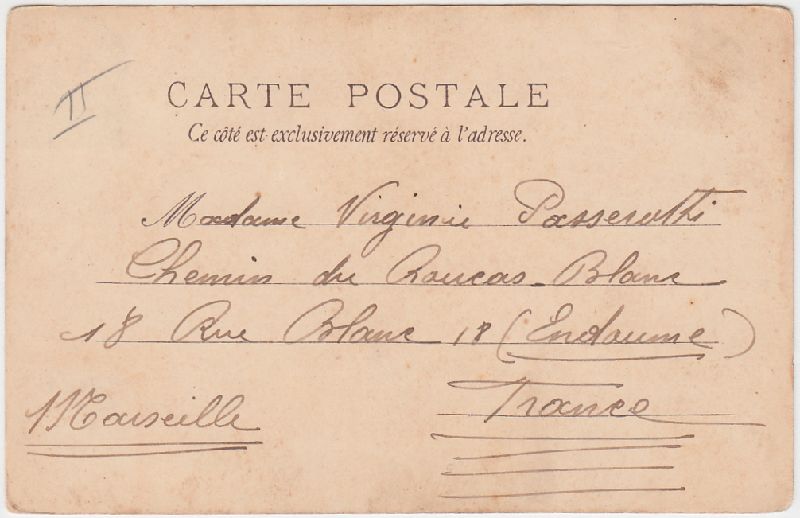 CARTE POSTALE
Ce côté est exclusivement réservé à l'adresse.
Madame Virginie
Chemin du Roucas-Blanc
18 Rue Blanc 18 (Endoume)
France
Marseille